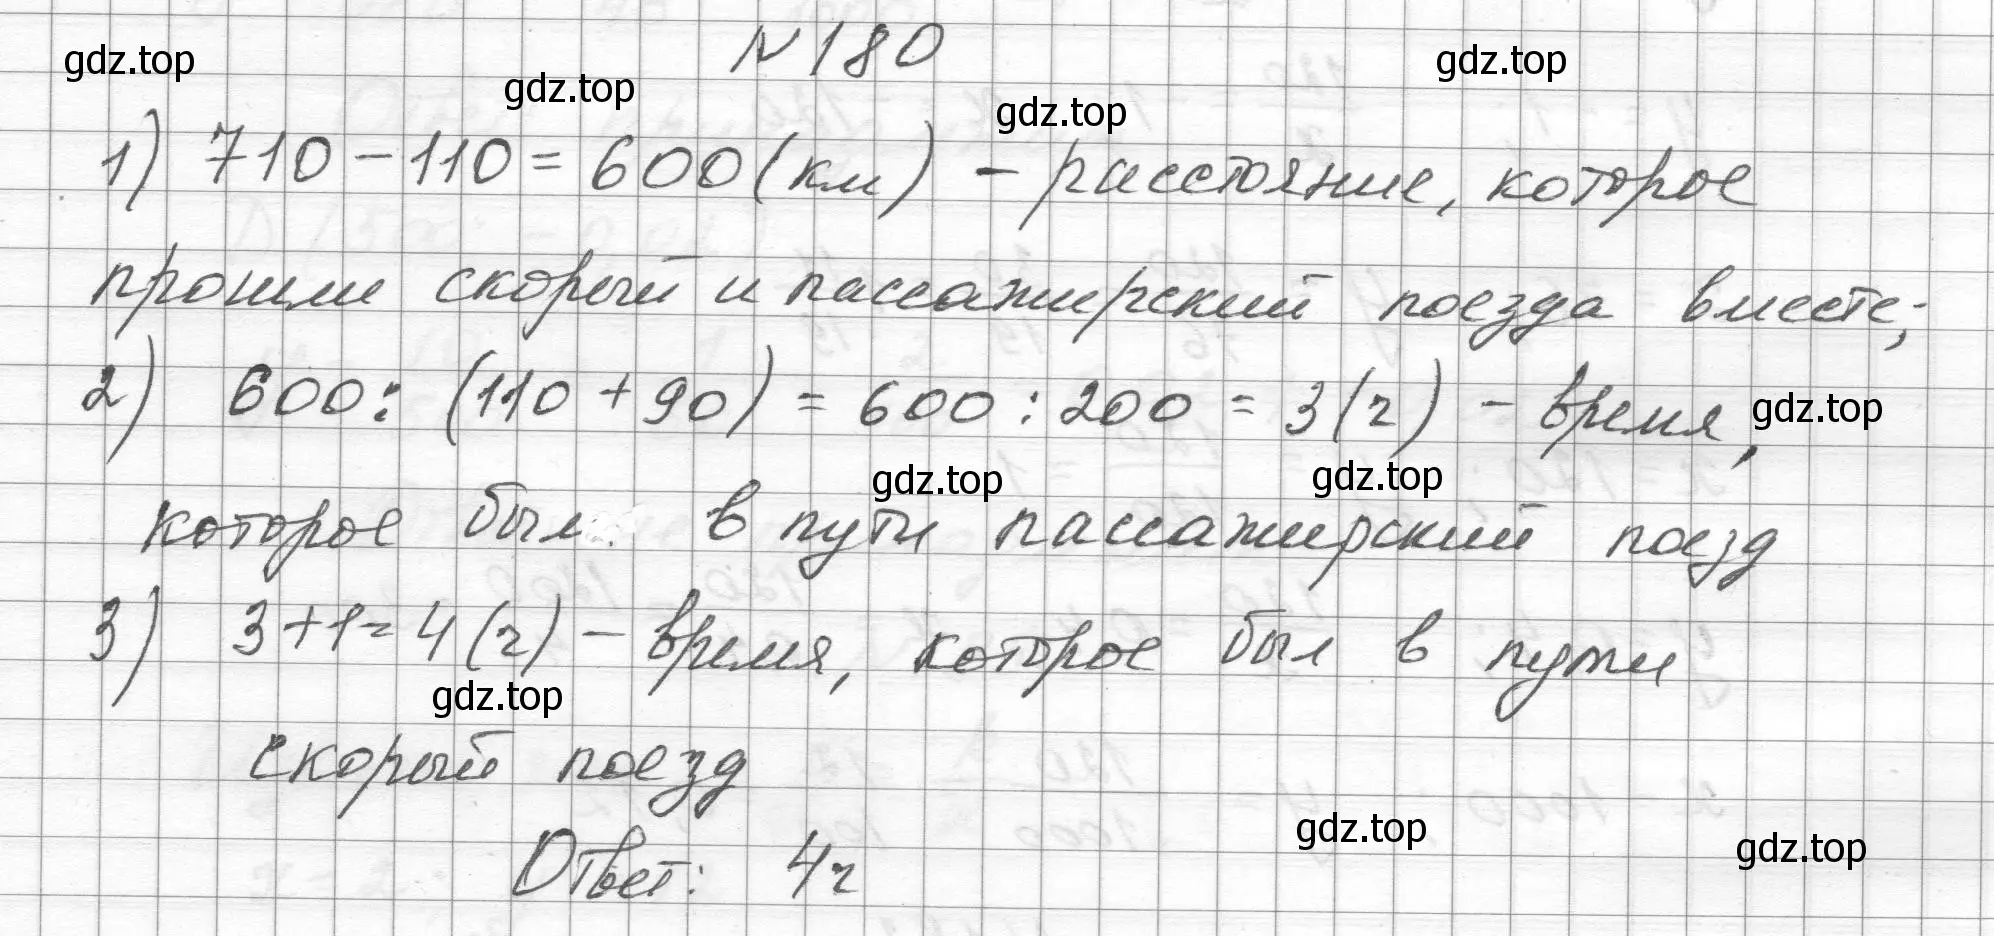 № 180
gdz.top gdz.top gdz.top gdz.top
1) 710 - 110 = 600 (км) - расстояние, которое
прошли скорый и пассажирский поезда вместе;
2) 600 : (110 + 90) = 600 : 200 = 3 (ч) - время,
gdz.top gdz.top gdz.top
которое был в пути пассажирский поезд
3) 3 + 1 = 4 (ч) - время, которое был в пути
gdz.top
скорый поезд
Ответ: 4ч
gdz.top gdz.top